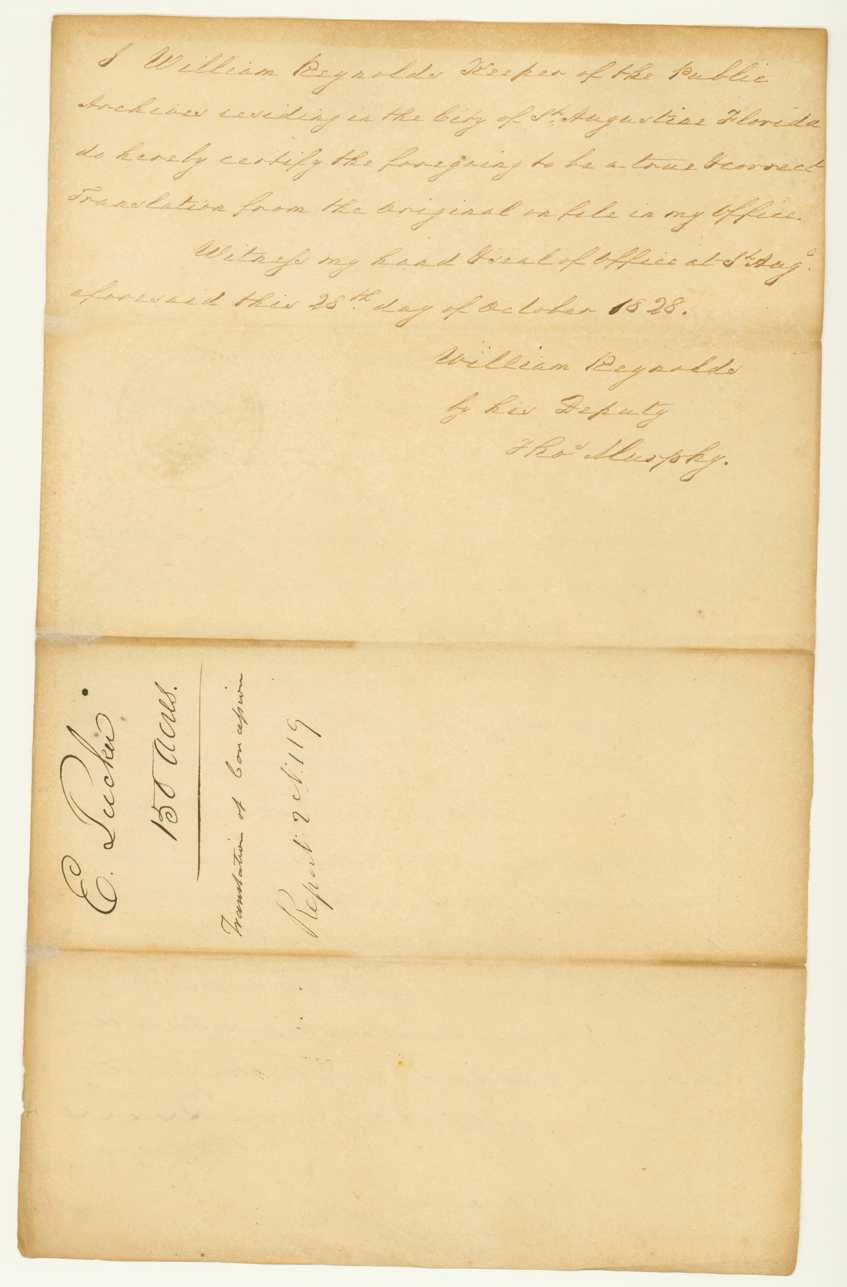 I William Reynolds Keeper of the Public
Archives residing in the City of St. Augustine Florida
do hereby certify the foregoing to be a true & correct
Translation from the original on file in my Office.
Witness my hand & seal of Office at St. Auge.
aforesaid this 28th. day of October 1828.
William Reynolds
by his Deputy
Thos Murphy.
E. Tucker
150 acres.
Translation of Concession
Report. 2 N. 119